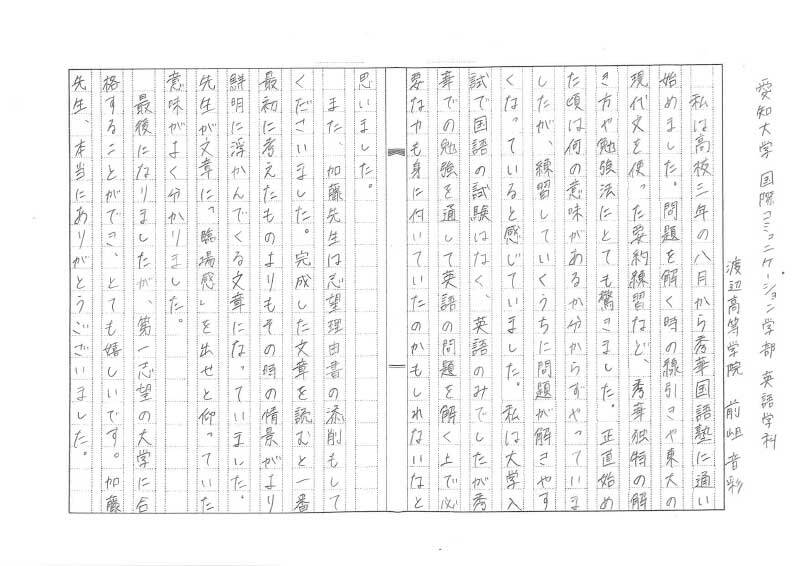 愛知大学 国際コミュニケーション学部 英語学科
渡辺高等学院 前岨 音彩
私は高校三年の八月から秀華国語塾に通い
始めました。問題を解く時の線引きや東大の
現代文を使った要約練習など、秀華独特の解
き方や勉強法にとても驚きました。正直始め
た頃は何の意味があるか分からずやっていま
したが、練習していくうちに問題が解きやす
くなっていると感じていました。私は大学入
試で国語の試験はなく、英語のみでしたが秀
華での勉強を通して英語の問題を解く上で必
要な力も身に付いていたのかもしれないなと
思いました。
また、加藤先生は志望理由書の添削もして
くださいました。完成した文章を読むと一番
最初に考えたものよりもその時の情景がより
鮮明に浮かんでくる文章になっていました。
先生が文章に「臨場感」を出せと仰っていた
意味がよく分かりました。
最後になりましたが、第一志望の大学に合
格することができ、とても嬉しいです。加藤
先生、本当にありがとうございました。